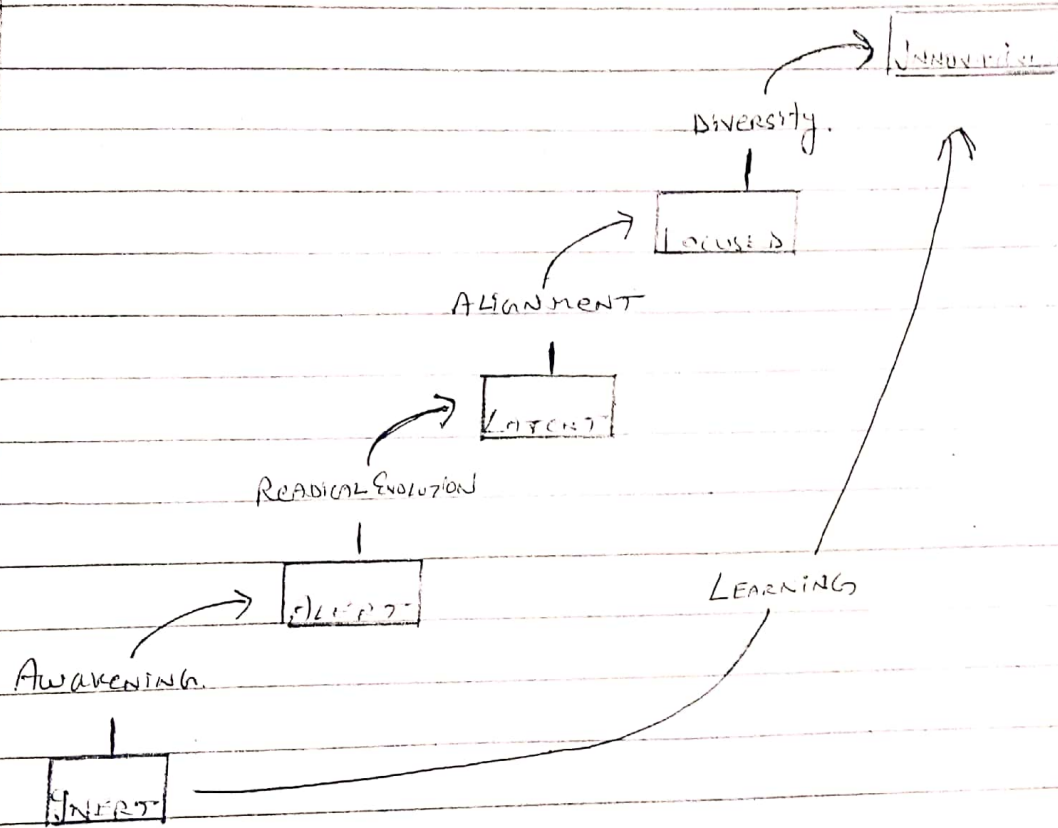 INNOVATIVE
Diversity.
Locused
ALIGNMENT
LATENT
READICAL EVOLUTION
ALERT
LEARNING
AWAKENING.
INERT